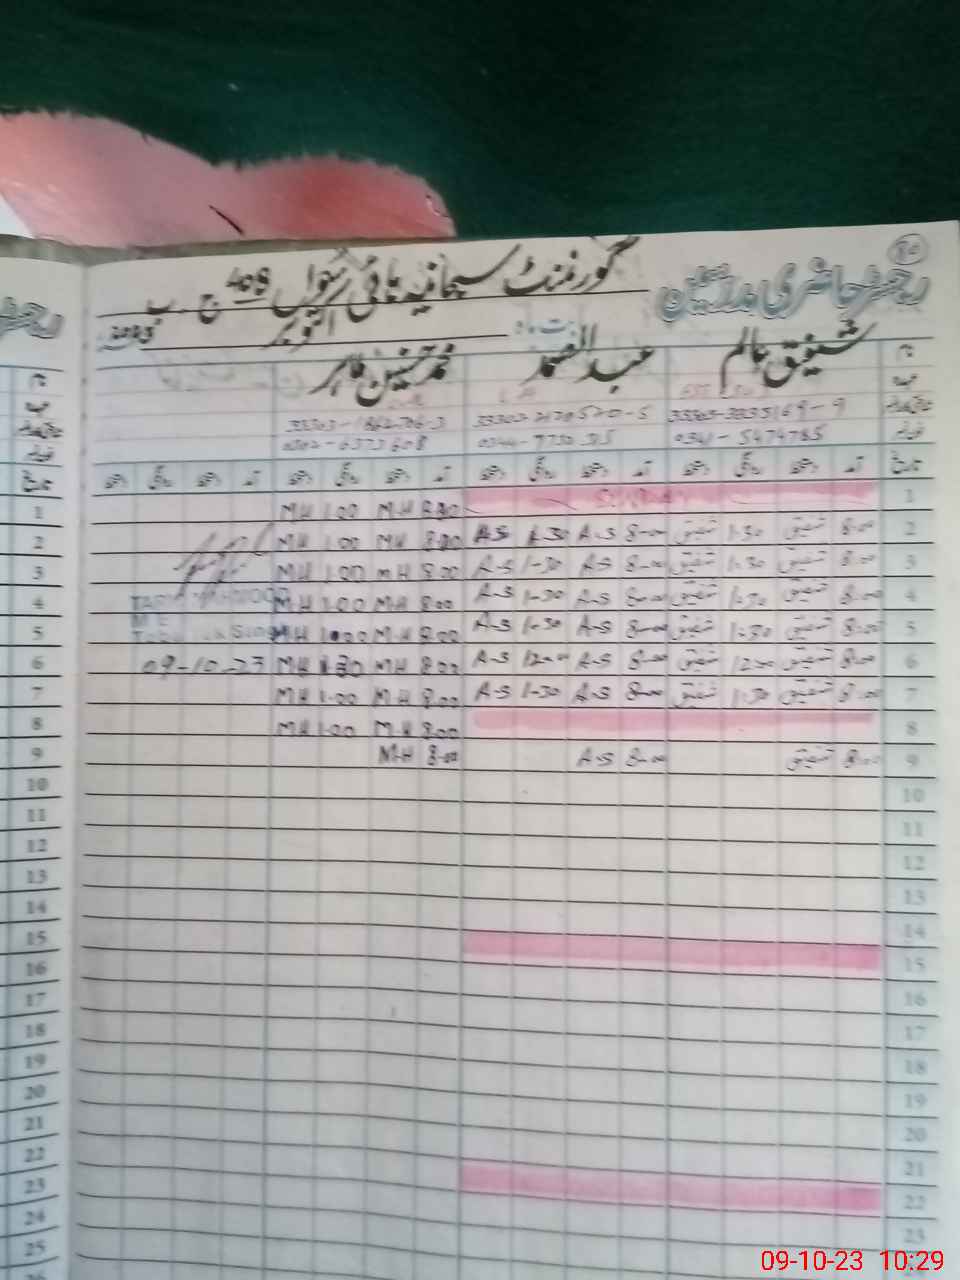 80
رجسٹر حاضری مدرسین
گورنمنٹ سبحانیہ ہائی سکول 408 ج ب
بابت ماہ اکتوبر 2023ء
نام شفیق عالم عبدالصمد محمد حسنین طاہر
عہدہ
33303-2170520-5
0341-5474785 0302-6373608
تاریخ آمد دستخط روانگی دستخط آمد دستخط روانگی دستخط آمد دستخط روانگی دستخط آمد دستخط روانگی دستخط
1 SUNDAY M H 1.00 M-H 8.00
2 8:00 شفیق 1-30 شفیق A-S 1-30 A-S 8-00 M H 1.00 M H 8.00
3 8:00 شفیق 1-30 شفیق A-S 1-30 A-S 8-00 M H 1.00 M H 8.00
4 8:00 شفیق 1-30 شفیق A-S 1-30 A-S 8-00 M H 1.00 M-H 8.00
5 8:00 شفیق 1-30 شفیق A-S 1-30 A-S 8-00 M H 1.00 M-H 8.00
6 8:00 شفیق 12-00 شفیق A-S 12-00 A-S 8-00 M H 1.30 M H 8.00
09-10-23
7 8:00 شفیق 1-30 شفیق A-S 1-30 A-S 8-00 M H 1.00 M H 8.00
8 M H 1.00 M-H 8.00
9 8:00 شفیق A-S 8-00 M-H 8-00
10
11
12
13
14
15
16
17
18
19
20
21
22
23
رجسٹر
نام
عہدہ
تاریخ
1
2
3
4
5
6
7
8
9
10
11
12
13
14
15
16
17
18
19
20
21
22
23
24
25
09-10-23 10:29